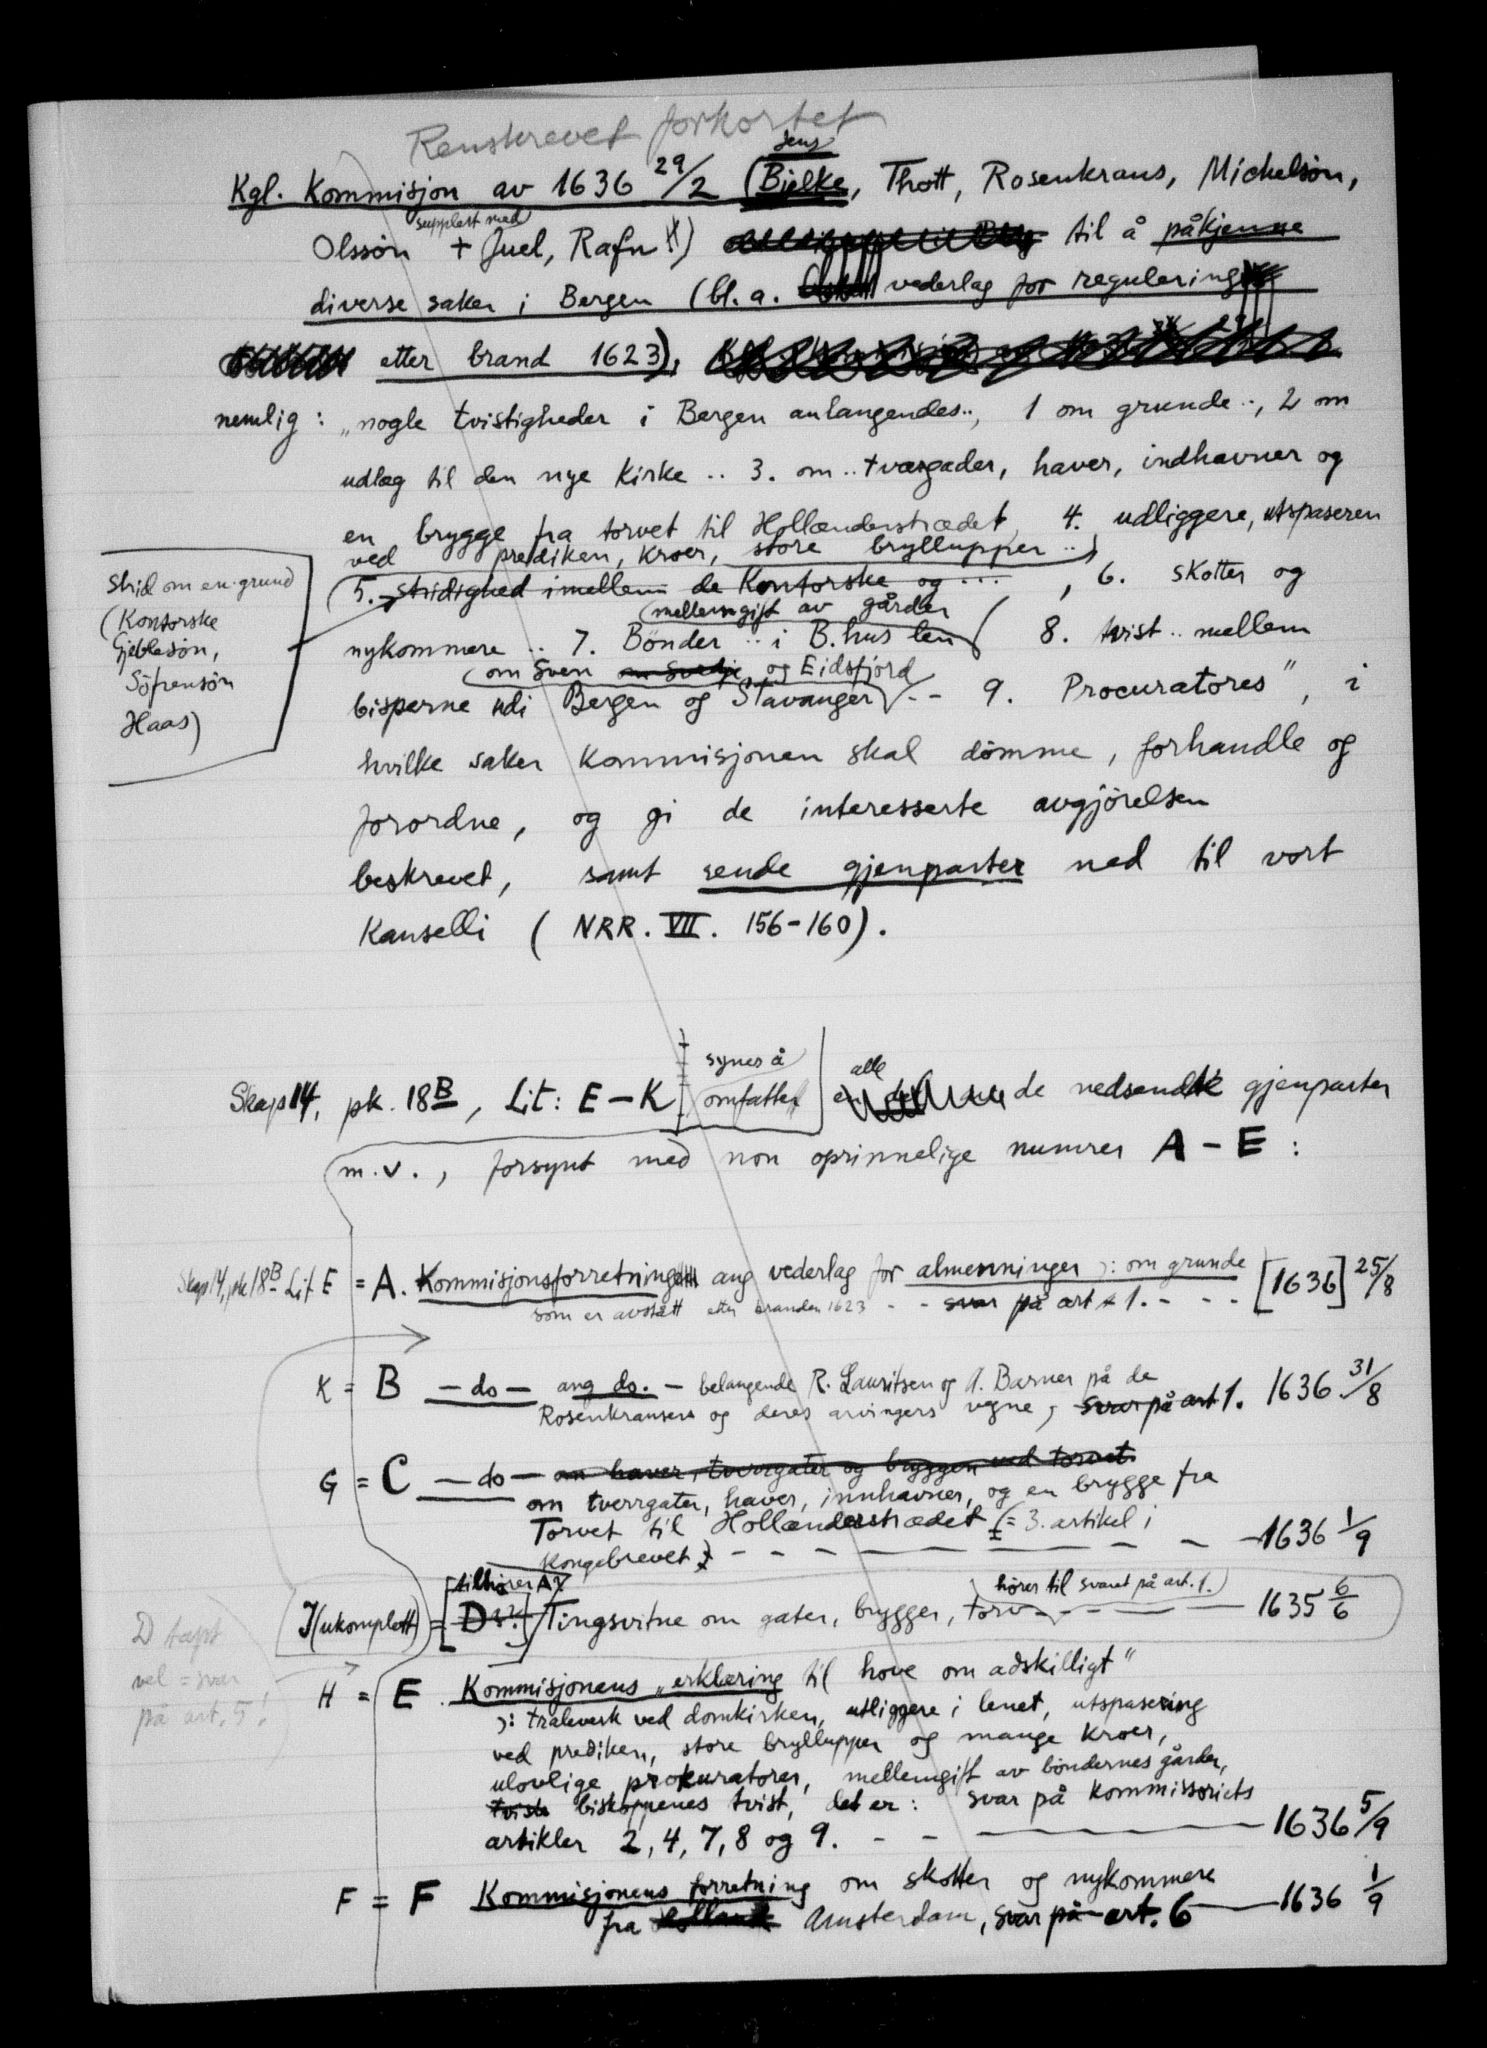 Renskrevet forkortet
Jens
Kgl. Kommisjon av 1636 29/2 (Bjelke, Thott, Rosenkrans, Michelsøn,
supplert med
Olssøn + Juel, Rafn) til å påkjenne
diverse saker i Bergen (bl.a. vederlag for regulering
etter brand 1623),
nemlig: „nogle tvistigheder i Bergen anlangendes.., 1 om grunde.., 2 om
udlæg til den nye Kirke .. 3. om .. tværgader, haver, indhavner og
en brygge fra torvet til Hollænderstrædet, 4. udliggere, utspaseren
ved prediken, kroer, store bryllupper ..
5. stridighed imellem de Kontorske og ..., 6. skotter og
mellemgift av gårder
nykommere .. 7. Bønder .. i B.hus len 8. tvist .. mellem
om Sven og Eidsfjord
bisperne udi Bergen og Stavanger .. 9. Procuratores", i
hvilke saker kommisjonen skal dømme, forhandle og
forordne, og gi de interesserte avgjørelsen
beskrevet, samt sende gjenparter ned til vort
Kanselli (NRR. VII. 156-160).
Strid om en grund
(Kontorske
Gjeblesøn,
Søfrensøn
Haas)
synes å
alle
Skap 14, pk. 18B, Lit: E-K omfatter de nedsendte gjenparter
m.v., forsynt med non oprinnelige numrer A-E:
Skap 14, pk 18B Lit E = A. Kommisjonsforretning ang vederlag for almenninger ɔ: om grunde [1636] 25/8
som er avstått etter branden 1623 - - svar på art 1. - - -
K = B -do- ang do. - belangende R. Lauritsen og A. Barner på de
Rosenkransers og deres arvingers vegne, svar på art 1. 1636 31/8
G = C -do- om haver, tverrgater og bryggen ved torvet
om tverrgater, haver, innhavner, og en brygge fra
Torvet til Hollænderstrædet (= 3. artikel i
Kongebrevet) - - - - - - - - 1636 1/9
tilhører A?
hører til svaret på art. 1.
J (ukomplett) = [D?] Tingsvitne om gater, brygger, torv - - - - 1635 6/6
D tapt
vel = svar
på art. 5!
H = E. Kommisjonens „erklæring til hove om adskilligt"
ɔ: tralverk ved domkirken, utliggere i lenet, utspasering
ved prediken, store bryllupper og mange kroer,
ulovlige prokuratorer, mellemgift av bøndernes gårder,
tviste biskoppenes tvist, det er: svar på kommissoriets
artikler 2, 4, 7, 8 og 9. - - - 1636 5/9
F = F Kommisjonens forretning om skotter og nykommere
fra Amsterdam, svar på art. 6 - 1636 1/9